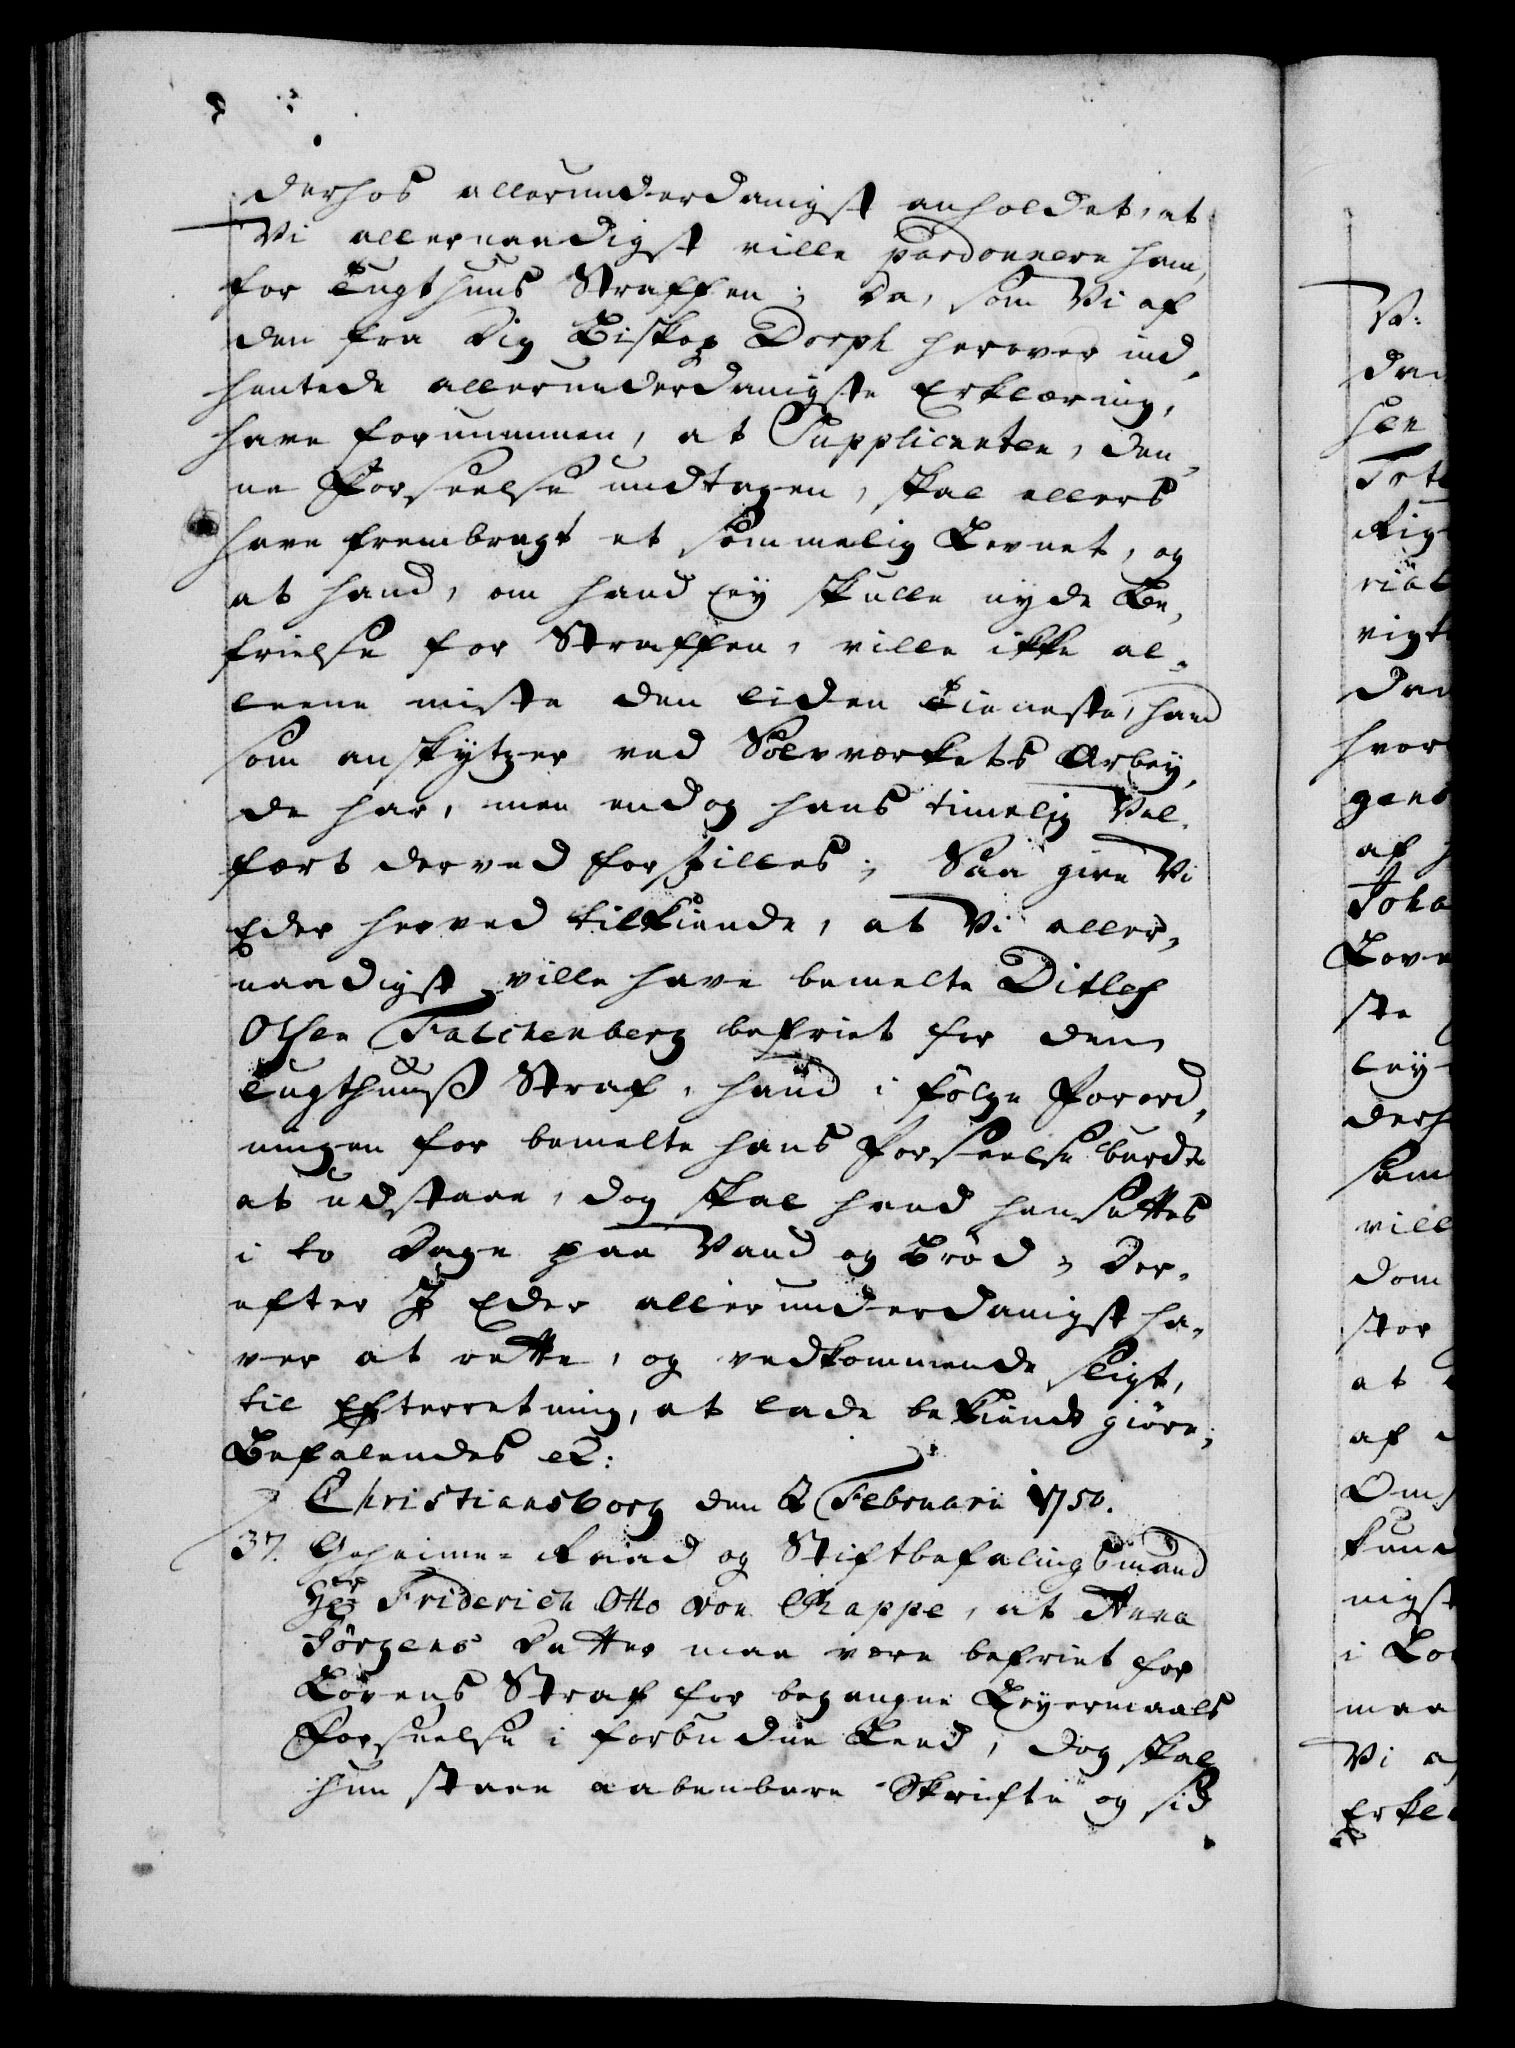 derhos allerunderdanigst anholdet, at
Vi allernaadigst ville pardonnere ham,
for Tugthuus Straffen; Da, som Vi af
den fra Dig Biskop Dorph herover ind¬
hentede allerunderdanigste Erklæring,
have fornummen, at Supplicanten, den¬
ne Forseelse undtagen, skal ellers
have frembragt et sømmelig Levnet, og
at hand, om hand ey skulle nyde Be¬
frielse for Straffen, ville ikke al¬
leene miste den liden Tieneste, hand
som anskytzer ved Sølvverkets Arbey¬
de har, men endog hans timelig Vel¬
fært derved forspilles; Saa give Vi
Eder herved tilkiende, at Vi aller¬
naadigst ville have bemelte Ditlef
Olsen Falchenberg befriet for den
Tugthuuß Straf, hand i følge Forord¬
ningen for bemelte hans Forseelse burde
at udstaae, dog skal hand hensættes
i to Dage paa Vand og Brød; Der¬
efter I Eder allerunderdanigst ha¬
ver at rette, og vedkommende sligt,
til Efterretning, at lade bekiendt giøre;
Befalendes etc:
Christiansborg den 2 Februarii 1750.
37. Geheime-Raad og Stiftbefalingsmand
Hr: Friderich Otto von Rappe, at Anna
Jørgens Datter maa være befriet for
Lovens Straf for begangne Leyermaals
Forseelse i forbudne Leed, dog skal
hun staae aabenbare Skrifte og sid